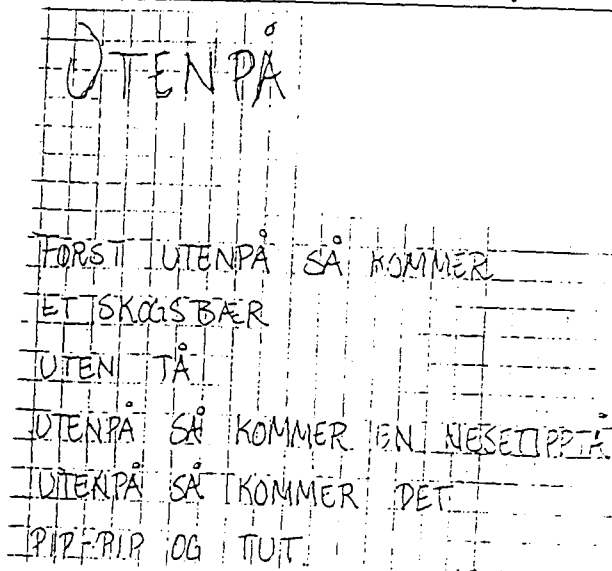 UTENPÅ
FØRST UTENPÅ SÅ KOMMER
ET SKOGSBÆR
UTEN TÅ
UTENPÅ SÅ KOMMER EN NESETIPPTÅ
UTENPÅ SÅ KOMMER DET
PIP-PIP OG TUT.